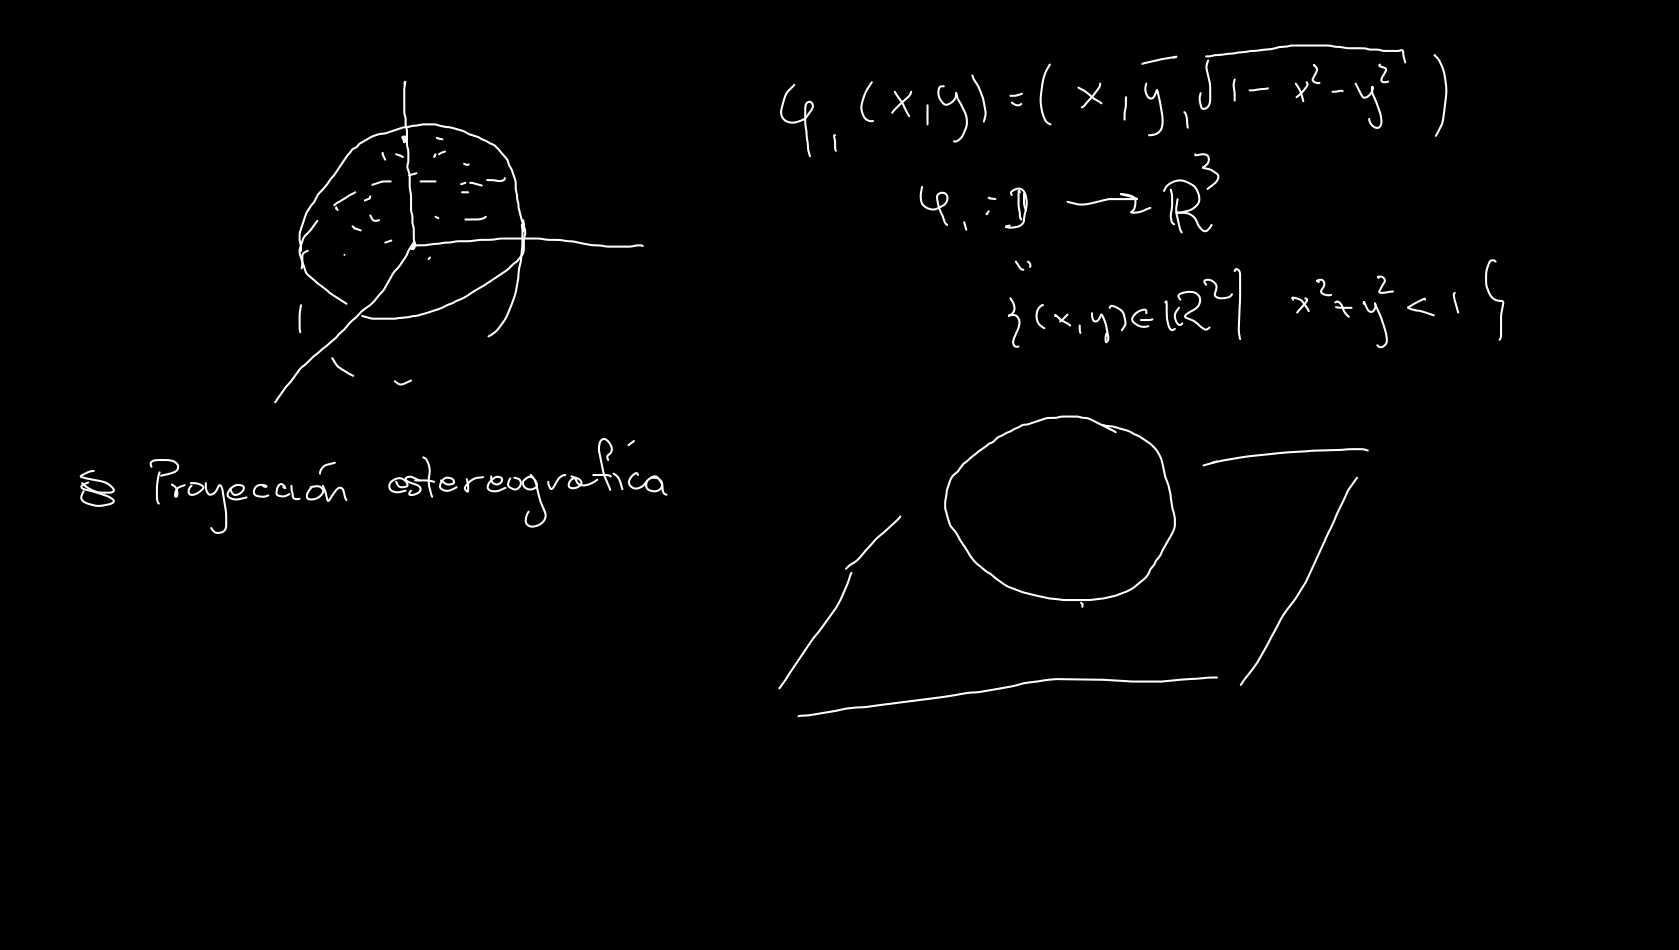 φ₁(x,y) = (x, y, √(1-x²-y²))
φ₁ : D → ℝ³
"
{(x,y) ∈ ℝ² | x²+y² < 1}
§ Proyección estereográfica